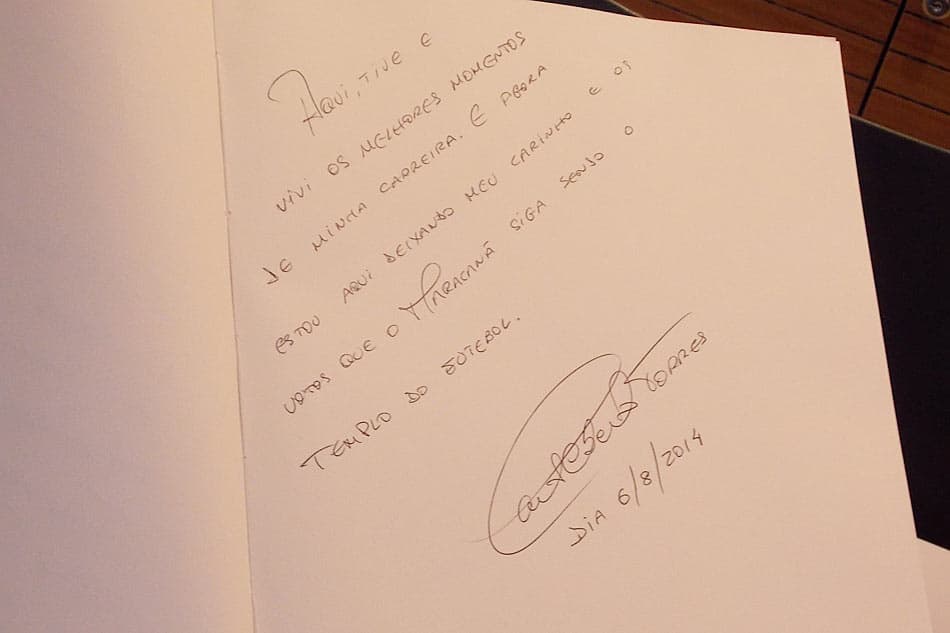 AQUI, TIVE E
VIVI OS MELHORES MOMENTOS
DE MINHA CARREIRA. E AGORA
ESTOU AQUI DEIXANDO MEU CARINHO E OS
VOTOS QUE O MARACANÃ SIGA SENDO O
TEMPLO DO FUTEBOL.
Carlos Alberto TORRES
DIA 6/8/2014